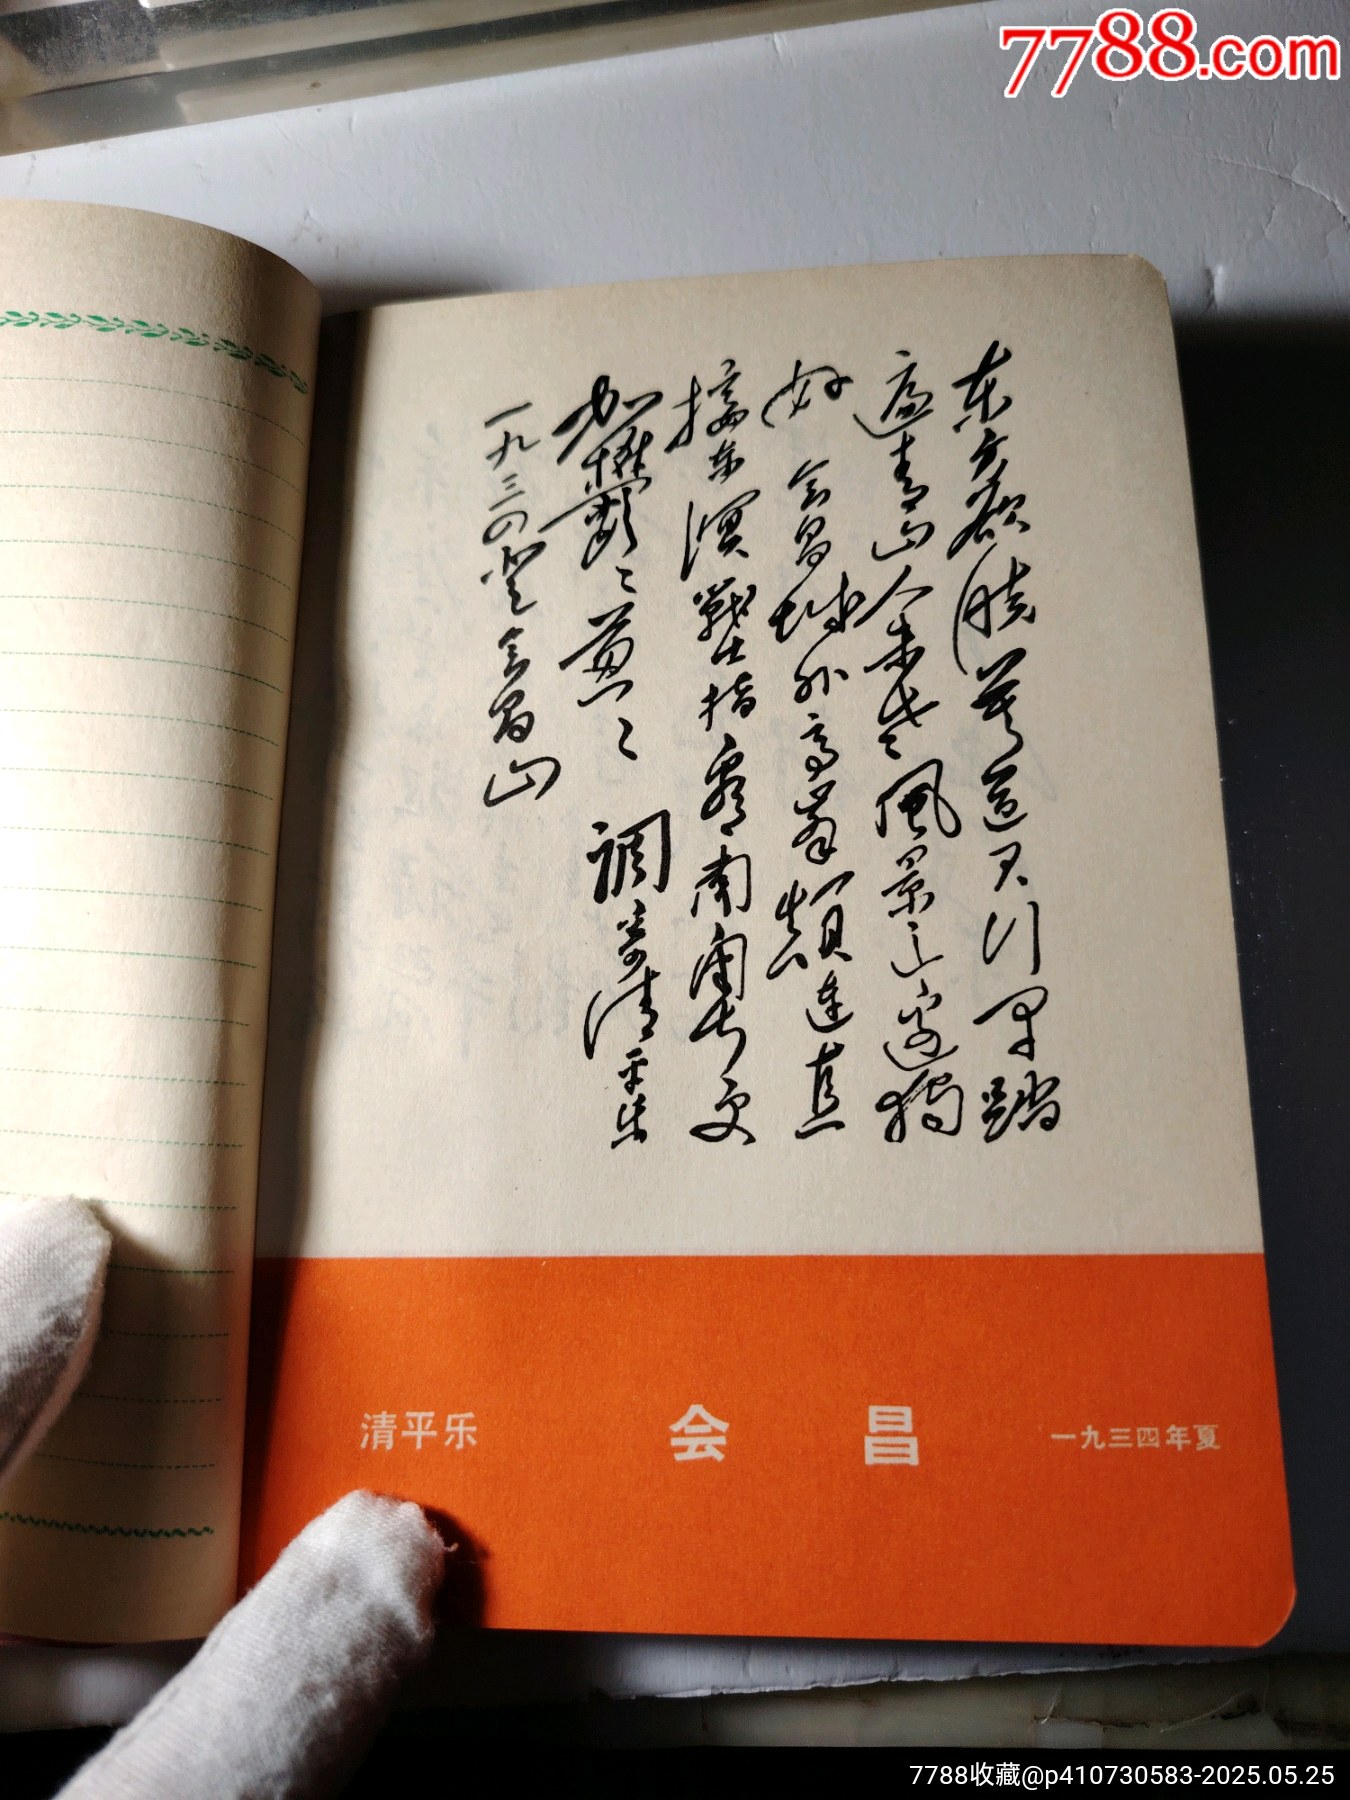 7788.com
东方欲晓莫道君行早踏
遍青山人未老风景这边独
好 会昌城外高峯颠连直
接东溟戰士指看南粤更
加鬱〻葱〻 調寄清平乐
一九三四登会昌山
清平乐 会昌 一九三四年夏
7788收藏@p410730583-2025.05.25